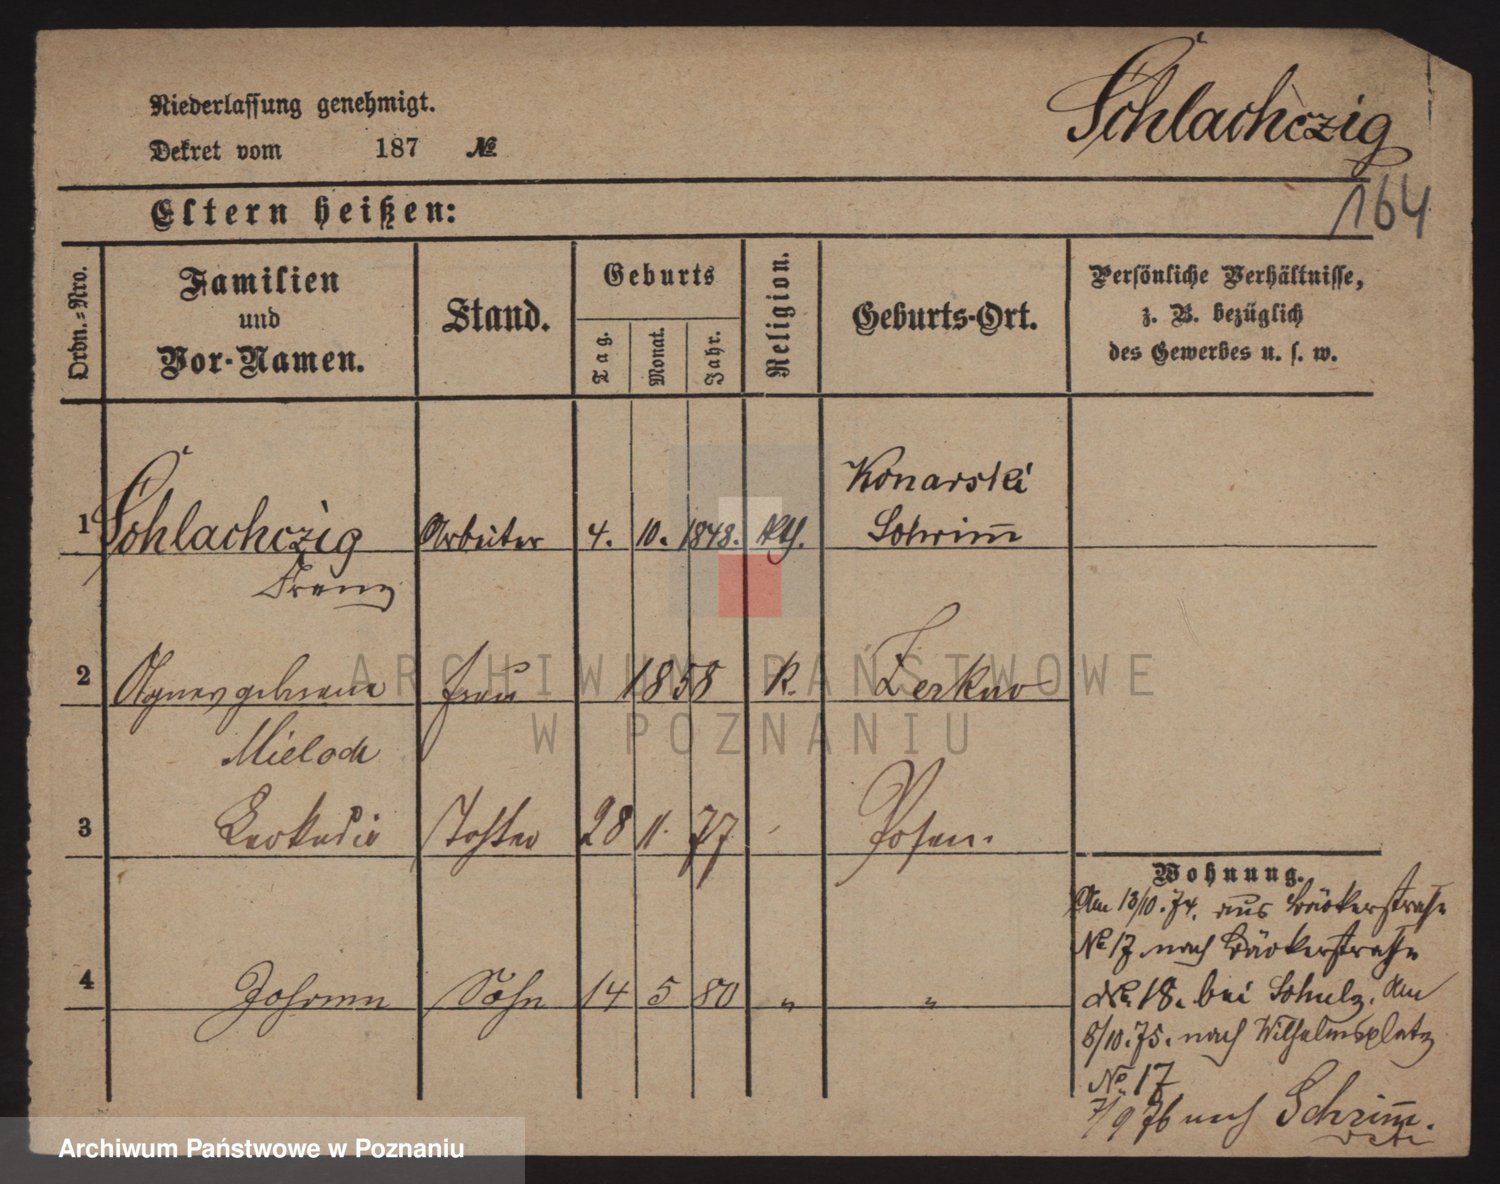 Schlachczig
Niederlassung genehmigt.
Dekret vom 187 №
164
Eltern heißen:
Ordn.=Nro.
Familien
und
Vor-Namen.
Stand.
Geburts
Tag.
Monat.
Jahr.
Religion.
Geburts-Ort.
Persönliche Verhältnisse,
z. B. bezüglich
des Gewerbes u. s. w.
Konarski
1 Schlachczig Arbeiter 4. 10. 1848. Kth. Schrim̄
Franz
2 Agnes geborene Frau 1858 K. Zerkow
Mieloch
3 Leokadia Tochter 28 11. 77 Posen.
4 Johann Sohn 14 5 80 " "
Wohnung.
Am 13/10. 74. aus Bäckerstraße
№ 17 nach Bäckerstraße
№ 18. bei Schulz. Am
8/10. 75. nach Wilhelmsplatz
№ 17
7/9 76 nach Schrim̄.
ARCHIWUM PAŃSTWOWE
W POZNANIU
Archiwum Państwowe w Poznaniu